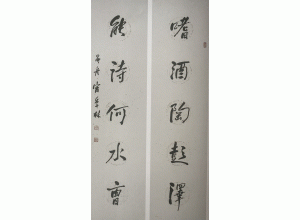 嗜酒陶彭澤
能诗何水曹